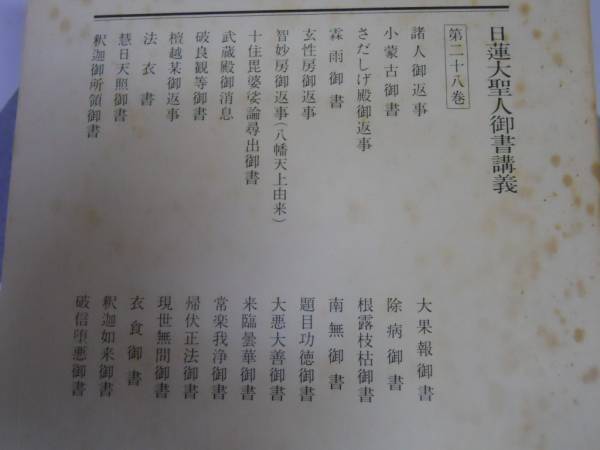 日蓮大聖人御書講義
第二十八巻
諸人御返事
小蒙古御書
さだしげ殿御返事
霖雨御書
玄性房御返事
智妙房御返事(八幡天上由来)
十住毘婆娑論尋出御書
武蔵殿御消息
破良観等御書
檀越某御返事
法衣書
慧日天照御書
釈迦御所領御書
大果報御書
除病御書
根露枝枯御書
南無御書
題目功徳御書
大悪大善御書
来臨曇華御書
常楽我浄御書
帰伏正法御書
現世無間御書
衣食御書
釈迦如来御書
破信堕悪御書